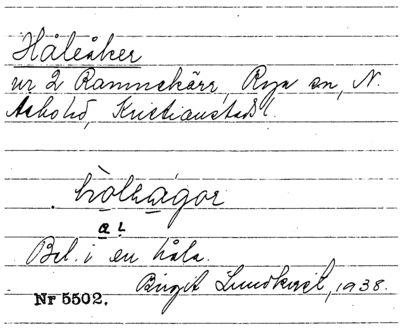 Håleåker
nr 2 Rammekärr, Röja sn, N.
Åsbo hd, Kristianstads l.
hòlèàgor
a l
Bel. i en håla.
Birgit Lundkvist, 1938.
Nr 5502.